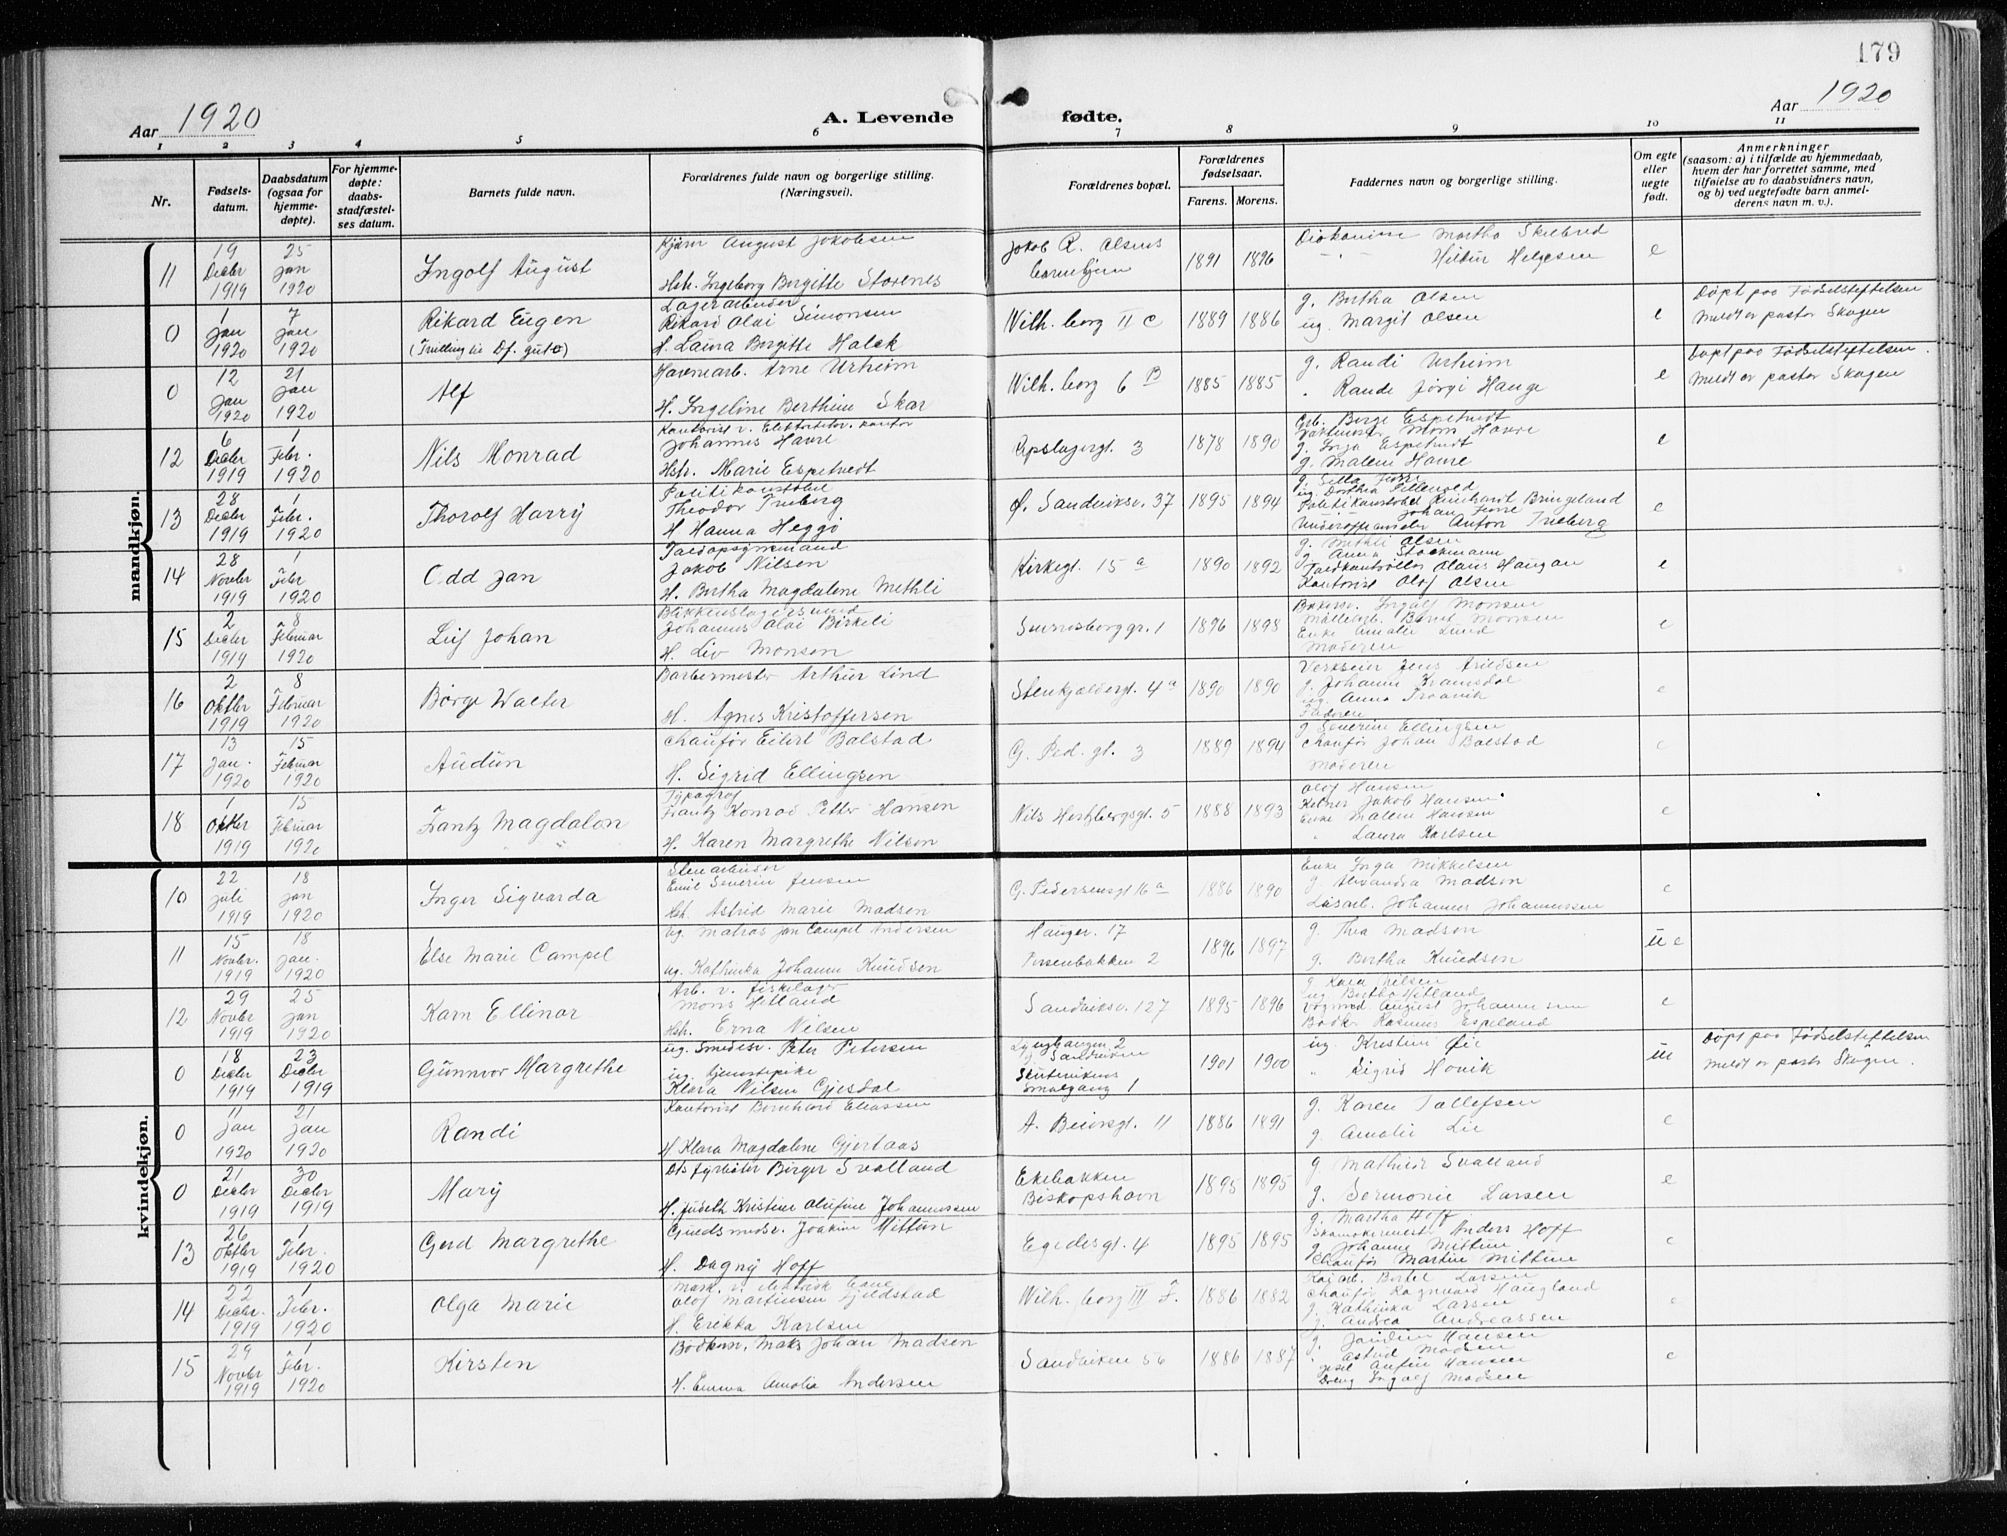 179
Aar 1920
A. Levende
fødte.
Aar 1920
1 2 3 4 5 6 7 8 9 10 11
Nr.
Fødsels-
datum.
Daabsdatum
(ogsaa for
hjemme-
døpte).
For hjemme-
døpte:
daabs-
stadfæstel-
ses datum.
Barnets fulde navn.
Forældrenes fulde navn og borgerlige stilling.
(Næringsvei).
Forældrenes bopæl.
Forældrenes
fødselsaar.
Farens. Morens.
Faddernes navn og borgerlige stilling.
Om egte
eller
uegte
født.
Anmerkninger
(saasom: a) i tilfælde av hjemmedaab,
hvem der har forrettet samme, med
tilføielse av to daabsvidners navn,
og b) ved uegtefødte barn anmel-
derens navn m. v.).
mandkjøn.
11
19 Decbr 1919
25 Jan 1920
Ingolf August
August Jakobsen
Hstr. Ingeborg Birgitte Storenes
Jakob R. Olsens
1891 1896
Martha Skilbred
Hildur Helgesen
e
0
1 Jan 1920
7 Jan 1920
Rikard Eugen
Lagerarbeider
Rikard Olai Simonsen
H. Laura Birgitte Halek
Wilh. borg II C
1889 1886
g. Bertha Olsen
ug. Margit Olsen
e
Døpt paa Fødselstiftelsen
meldt av pastor Skagen
0
12 Jan 1920
21 Jan 1920
Alf
Havnearb. Arne Urheim
H. Ingeline Berthine Skar
Wilh. borg 6 B
1885 1885
g. Randi Urheim
" Randi Jørgi Hauge
e
Døpt paa Fødselstiftelsen
meldt av pastor Skagen
12
6 Decbr 1919
1 Febr. 1920
Nils Monrad
Johannes Havre
Hstr. Marie Espetvedt
3
1878 1890
Børge Espetvedt
Mons Havre
g. Inga Espetvedt
g. Malene Havre
e
13
28 Decbr 1919
1 Febr. 1920
Thorolf Harry
Politikonstabel
Theodor Treberg
H Hanna Heggø
Ø. Sandviksv. 37
1895 1894
Politikonstabel Reinhardt Bringeland
Anton Treberg
e
14
28 Novbr 1919
1 Febr 1920
Odd Jan
Jakob Nilsen
H. Bertha Magdalene Methli
Kirkegt. 15 a
1890 1892
g. Methli Olsen
g. Anna Stockmann
Toldkontrollør Olaus Haugan
Kontorist Olaf Olsen
e
15
2 Decbr 1919
8 Februar 1920
Leif Johan
Blikkenslagersvend
Johannes Olai Birkeli
H. Liv Monsen
1896 1898
Ingolf Monsen
Bernt Monsen
Enke Amalie Lund
Moderen
e
16
2 Oktbr 1919
8 Februar 1920
Børge Walter
Barbermester Arthur Lind
H. Agnes Kristoffersen
Stenkjeldergt. 4 a
1890 1890
Jens Arildsen
g. Johanne Kramsdal
Faderen
e
17
13 Jan. 1920
15 Februar 1920
Audun
Chauffør Eilert Balstad
H. Sigrid Ellingsen
G. Ped. gt. 3
1889 1894
g. Severine Ellingsen
Chauffør Johan Balstad
Moderen
e
18
1 Oktbr 1919
15 Februar 1920
Frantz Magdalon
Typograf
Frantz Konrad Petter Hansen
H. Karen Margrethe Nilsen
Nils Hertzbergsgt. 5
1888 1893
Olaf Hansen
Kelner Jakob Hansen
Enke Malene Hansen
" Laura Karlsen
e
kvindekjøn.
10
22 Juli 1919
18 Jan 1920
Inger Sigvarda
Stenarbeider
Emil Severin Jensen
Hst. Astrid Marie Madsen
G. Pedersensgt 16 a
1886 1890
Enke Inga Mikkelsen
g. Alexandra Madsen
Løsarb. Johannes Johannessen
e
11
15 Novbr. 1919
18 Jan. 1920
Else Marie Campel
ug. Matros Jan Campel Andersen
ug. Kathinka Johanne Knudsen
Hauger. 17
2
1896 1897
g. Thea Madson
g. Bertha Knudson
u e
12
29 Novbr 1919
25 Jan 1920
Karn Ellinor
Arb. v. fiskelager
Mons Hitland
Hstr. Erna Nilsen
Sandviksv. 127
1895 1896
g. Kaia Nilsen
ug. Bertha Hitland
Vognmd August Johannessen
Bødk. Rasmus Espeland
e
0
18 Decbr 1919
23 Decbr 1919
Gunnvor Margrethe
ug. Smedesv. Peter Petersen
ug. tjenestepike
Klara Nilsen Gjesdal
2
Sandviken
Smalgang 1
1901 1900
ug. Kristin Øie
" Sigrid Hovik
ue
Døpt paa Fødselstiftelsen
meldt av pastor Skagen.
0
11 Jan 1920
21 Jan 1920
Randi
Kontorist Bernhard Eliassen
H Klara Magdalene Gjertaas
A. Beiersgt. 11
1886 1891
g. Karen Tallefsen
g. Amalie Lie
e
0
21 Decbr 1919
30 Decbr 1919
Mary
Birger Svalland
H. Judith Kristine Olufine Johannessen
Ekebakken
Biskopshavn
1895 1895
g. Mathilde Svalland
g. Sermonie Larsen
e
13
26 Oktbr 1919
1 Febr. 1920
Gerd Margrethe
Guldsmedsv. Joakim Mittun
H. Dagny Hoff
Egedesgt. 4
1895 1895
g. Martha Hoff
Skomakermest Anders Hoff
g. Johanne Mittun
Chauffør Martin Mittun
e
14
22 Decbr. 1919
1 Febr. 1920
Olga Marie
Olaf Martinsen Fjeldstad
H. Erekka Karlsen
Wilh. borg III F.
1886 1882
Bertel Larsen
Chauffør Ragnvald Haugland
g. Kathinka Larsen
g. Andrea Andreassen
e
15
29 Novbr 1919
1 Febr. 1920
Kirsten
Bødkersv. Maks Johan Madsen
H. Emma Amalia Andersen
Sandviken 56
1886 1887
g. Jondine Hansen
" Astrid Madsen
Hansen
Dreng Ingolf Madsen
e